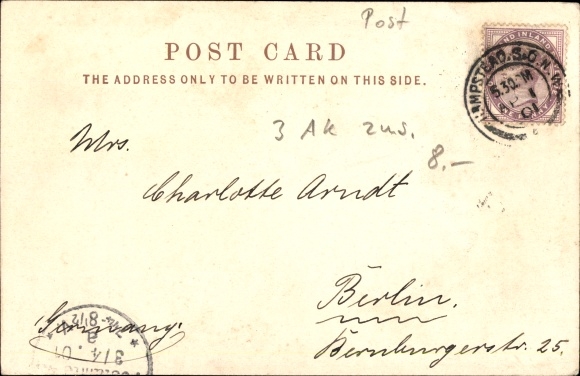 Post
POST CARD
THE ADDRESS ONLY TO BE WRITTEN ON THIS SIDE.
AND INLAND
HAMPSTEAD. S.O. N.W.
5.30 PM
01
3 AK zus.
8.-
Mrs.
Charlotte Arndt
Berlin.
Bernburgerstr. 25.
Germany.
3/4. 01